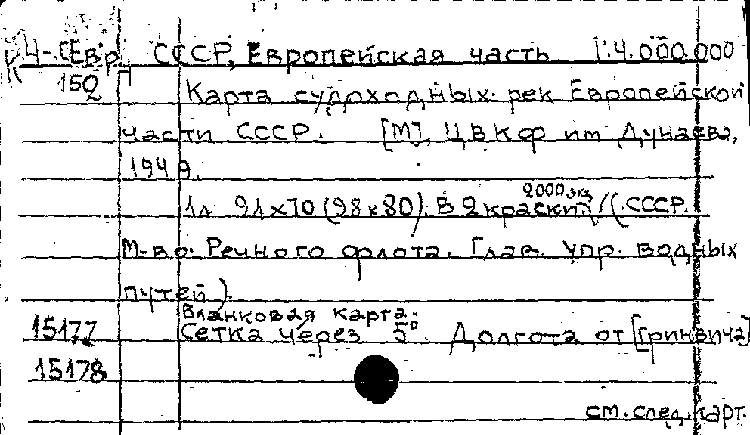 К Ч-(Евр) СССР, Европейская часть 1:4.000.000
152 Карта судоходных рек Европейской
части СССР. [М], ЦВКФ им Дунаева,
1949.
2000 экз
1л 91х70 (98х80). В 2 краски. /(СССР.
М-во. Речного флота. Глав. упр. водных
путей).
Бланковая карта.
15177 Сетка через 5° Долгота от [Гринвича]
15178
см. след. карт.